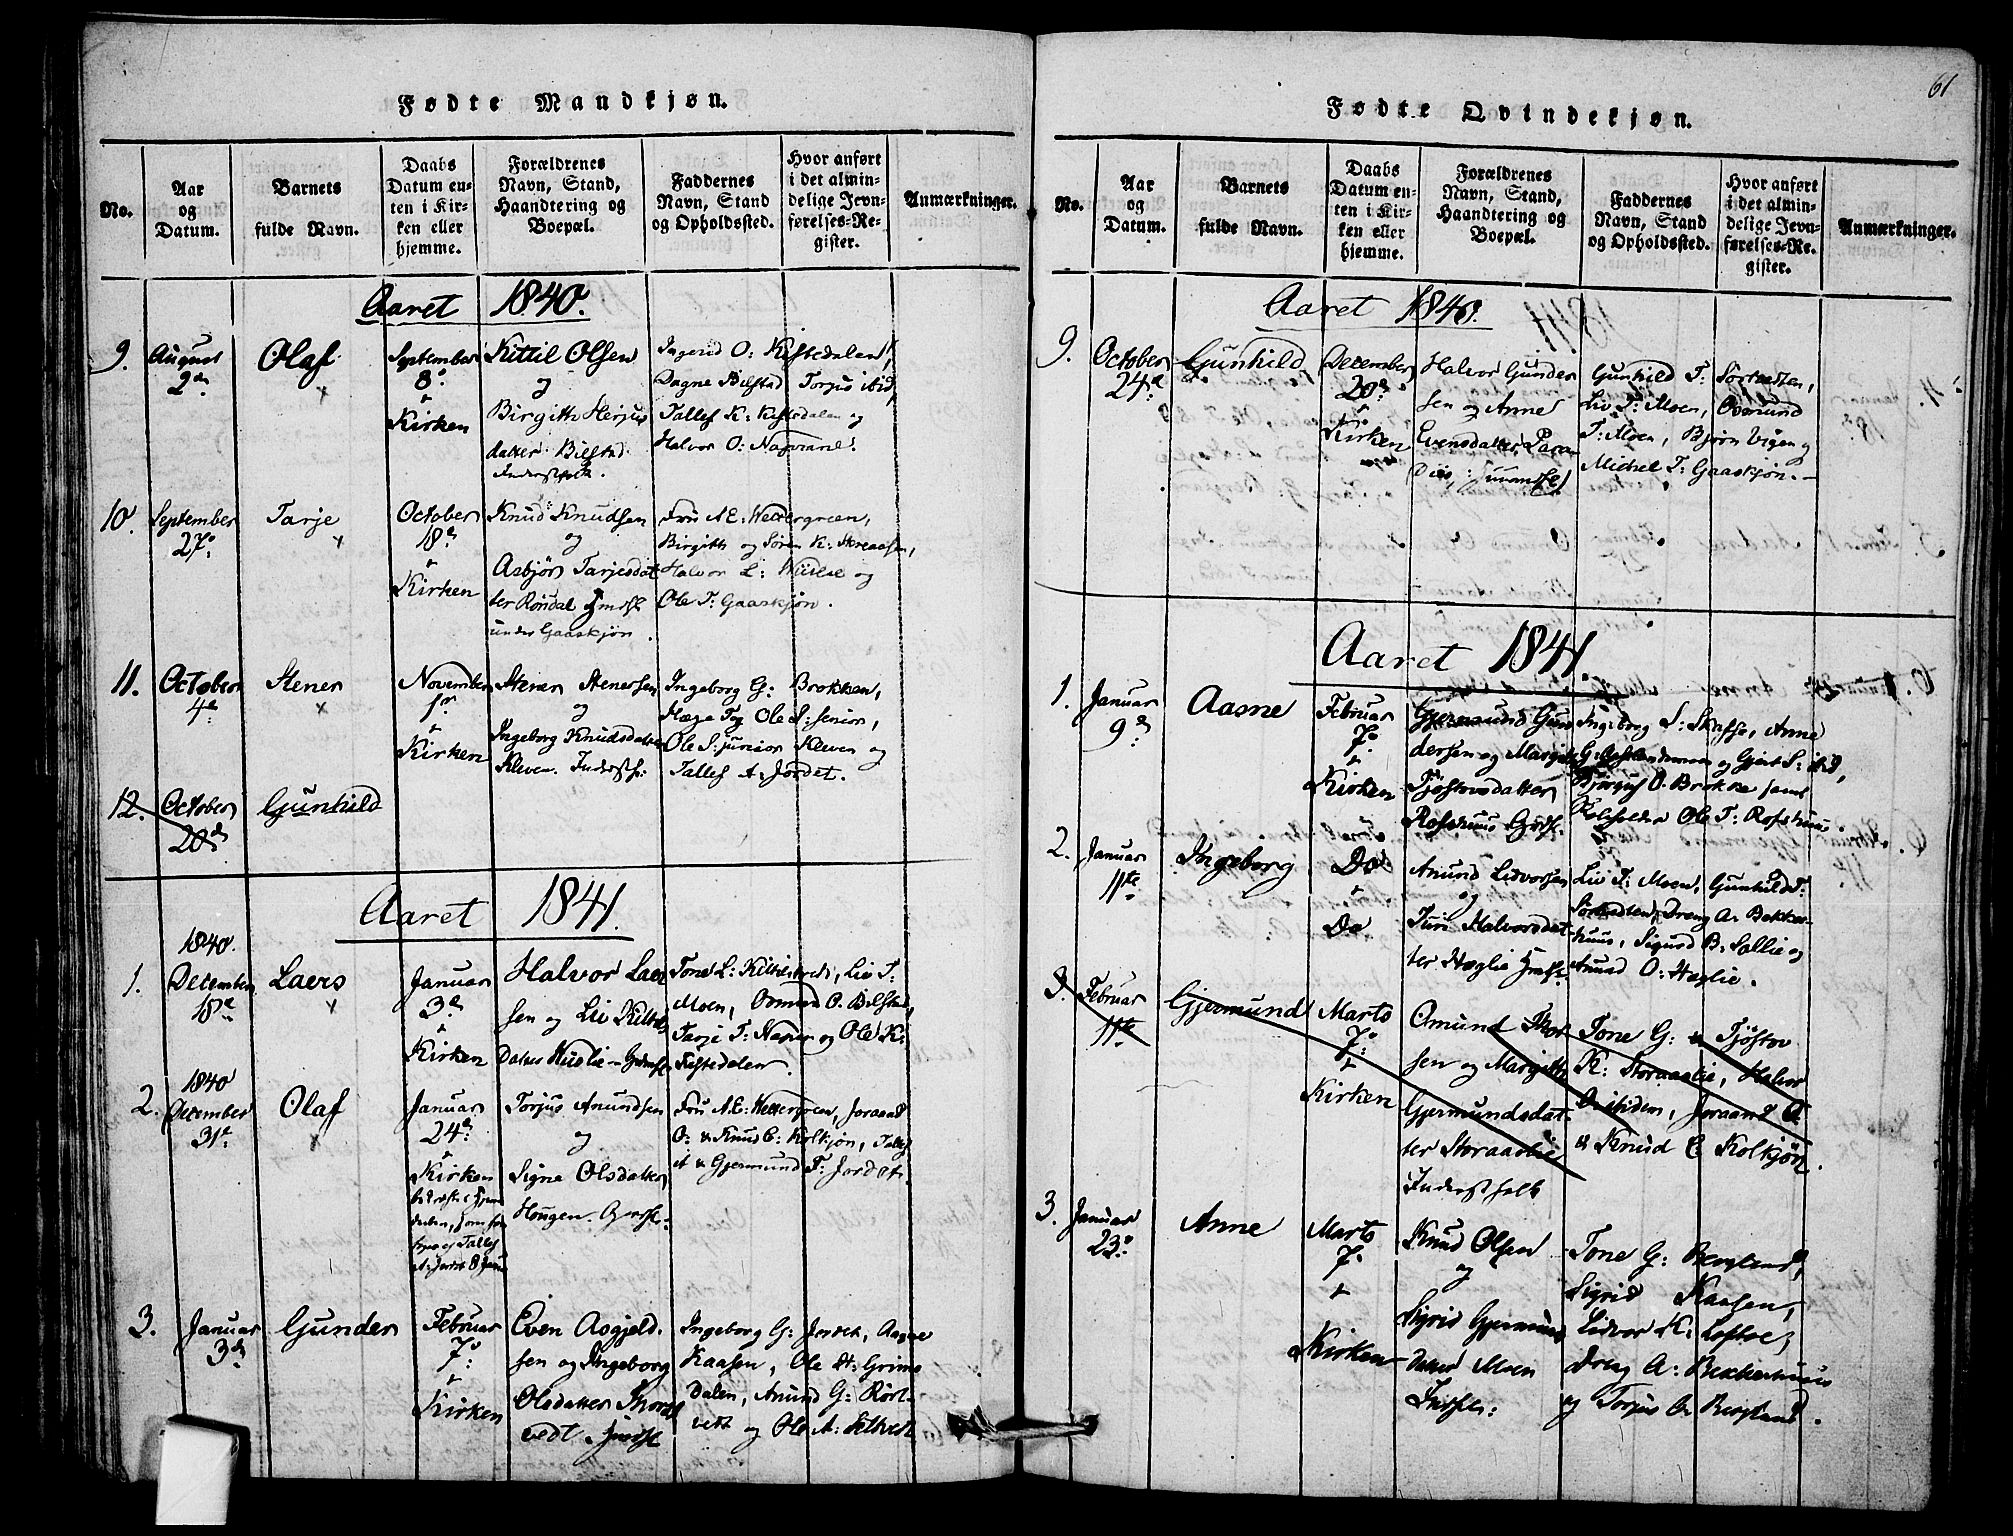 Fødte Mandkjøn.
No.
Aar
og
Datum.
Barnets
fulde Navn.
Daabs
Datum en-
ten i Kir-
ken eller
hjemme.
Forældrenes
Navn, Stand,
Haandtering og
Boepæl.
Faddernes
Navn, Stand
og Opholdssted.
Hvor anført
i det almin-
delige Jevn-
førelses-Re-
gister.
Anmærkninger.
Aaret 1840.
9.
August
2
Olaf
September
8
Kirken
Kittil Olsen
og
Birgith Herjus
datter Bilstad
Ingerid O: Kistedalen,
Dagne Bilstad Torjus ibid,
Tallef K: Kistedalen og
Halvor O:
10.
September
27
Tarje
October
18
Kirken
Knud Knudsen
og
Asbjør Tarjesdat
ter Røisdal
under Gaaskjøn.
Fru A E: Wettergreen,
Birgith og Søren K:
Halvor L: og
Ole T: Gaaskjøn.
11.
October
4
Stener
November
1
Kirken
Stener Stenersen
og
Ingeborg Knudsdatter
Kleven.
Ingeborg G: Brokken,
Hæge T og Ole S: senior,
Ole S: junior Kleven og
Tallef A: Jordet.
12.
October
20
Gunhild
Aaret 1841.
1.
1840.
December
18
Laers
Januar
3
Kirken
Halvor Laer
sen og Liv
Datter
Tone L: Liv T:
Moen, Osmund O. Bilstad,
Tarje T: og Ole K:
Kistedalen.
2.
1840
December
31
Olaf
Januar
24
Kirken
Torjus Anundsen
og
Signe Olsdatter
Hougen.
Fru A E: Wettergreen, Joraand
O: & Knud E: Kolkjøn, Tallef
A & Gjermund T: Jordet.
3.
Januar
3
Gunder
Februar
7
Kirken
Even Asgjeld-
sen og Ingeborg
Olsdatter
vedt
Ingeborg G: Jordet, Aagne
Kaasen, Ole H: Grims
dalen, Anund G: Rort-
vett og Ole A:
61
Fødte Qvindekjøn.
No.
Aar
og
Datum.
Barnets
fulde Navn.
Daabs
Datum en-
ten i Kir-
ken eller
hjemme.
Forældrenes
Navn, Stand,
Haandtering og
Boepæl.
Faddernes
Navn, Stand
og Opholdssted.
Hvor anført
i det almin-
delige Jevn-
førelses-Re-
gister.
Anmærkninger.
Aaret 1840.
9.
October
24
Gunhild
December
20
Kirken
Halvor Gunder
sen og Anne
Evensdatter
Gunhild T:
Liv T: Moen, Osmund
T: Moen, Bjørn Vigen og
Michel T: Gaaskjøn.
Aaret 1841.
1.
Januar
9
Aasne
Februar
7
Kirken
Gjermund Gun
dersen og Margith
Tjøstovsdatter
Roshuus
Ingeborg S: Anne
og Gjert S: ibid,
O. Brokke samt
Ole T: Roshuus.
2.
Januar
11te
Ingeborg
Do
Do
Anund Lidvorsen
og
Turi Halvorsdat
ter Hæglie
Liv T: Moen, Gunhild T:
Dreng A: Bekke-
huus, Sigurd B. Sollie og
Anund O: Hæglie.
3.
Februar
11te
Gjermund
Marts
7
Kirken
Omund
sen og Margith
Gjermundsdat
ter Storaaslie
Inderst folk
Tone G: & Tjøstov
K: Storaaslie, Halvor
O: ibidem, Joraand O
& Knud E Kolkjøn.
3.
Januar
23
Anne
Marts
7
Kirken
Knud Olsen
og
Sigrid Gjermunds
datter Moen
Tone G: Bergland,
Sigrid Kaasen,
Lidvor K: Loftve,
Dreng A: Bekkehuus
og Torjus O. Bergland.